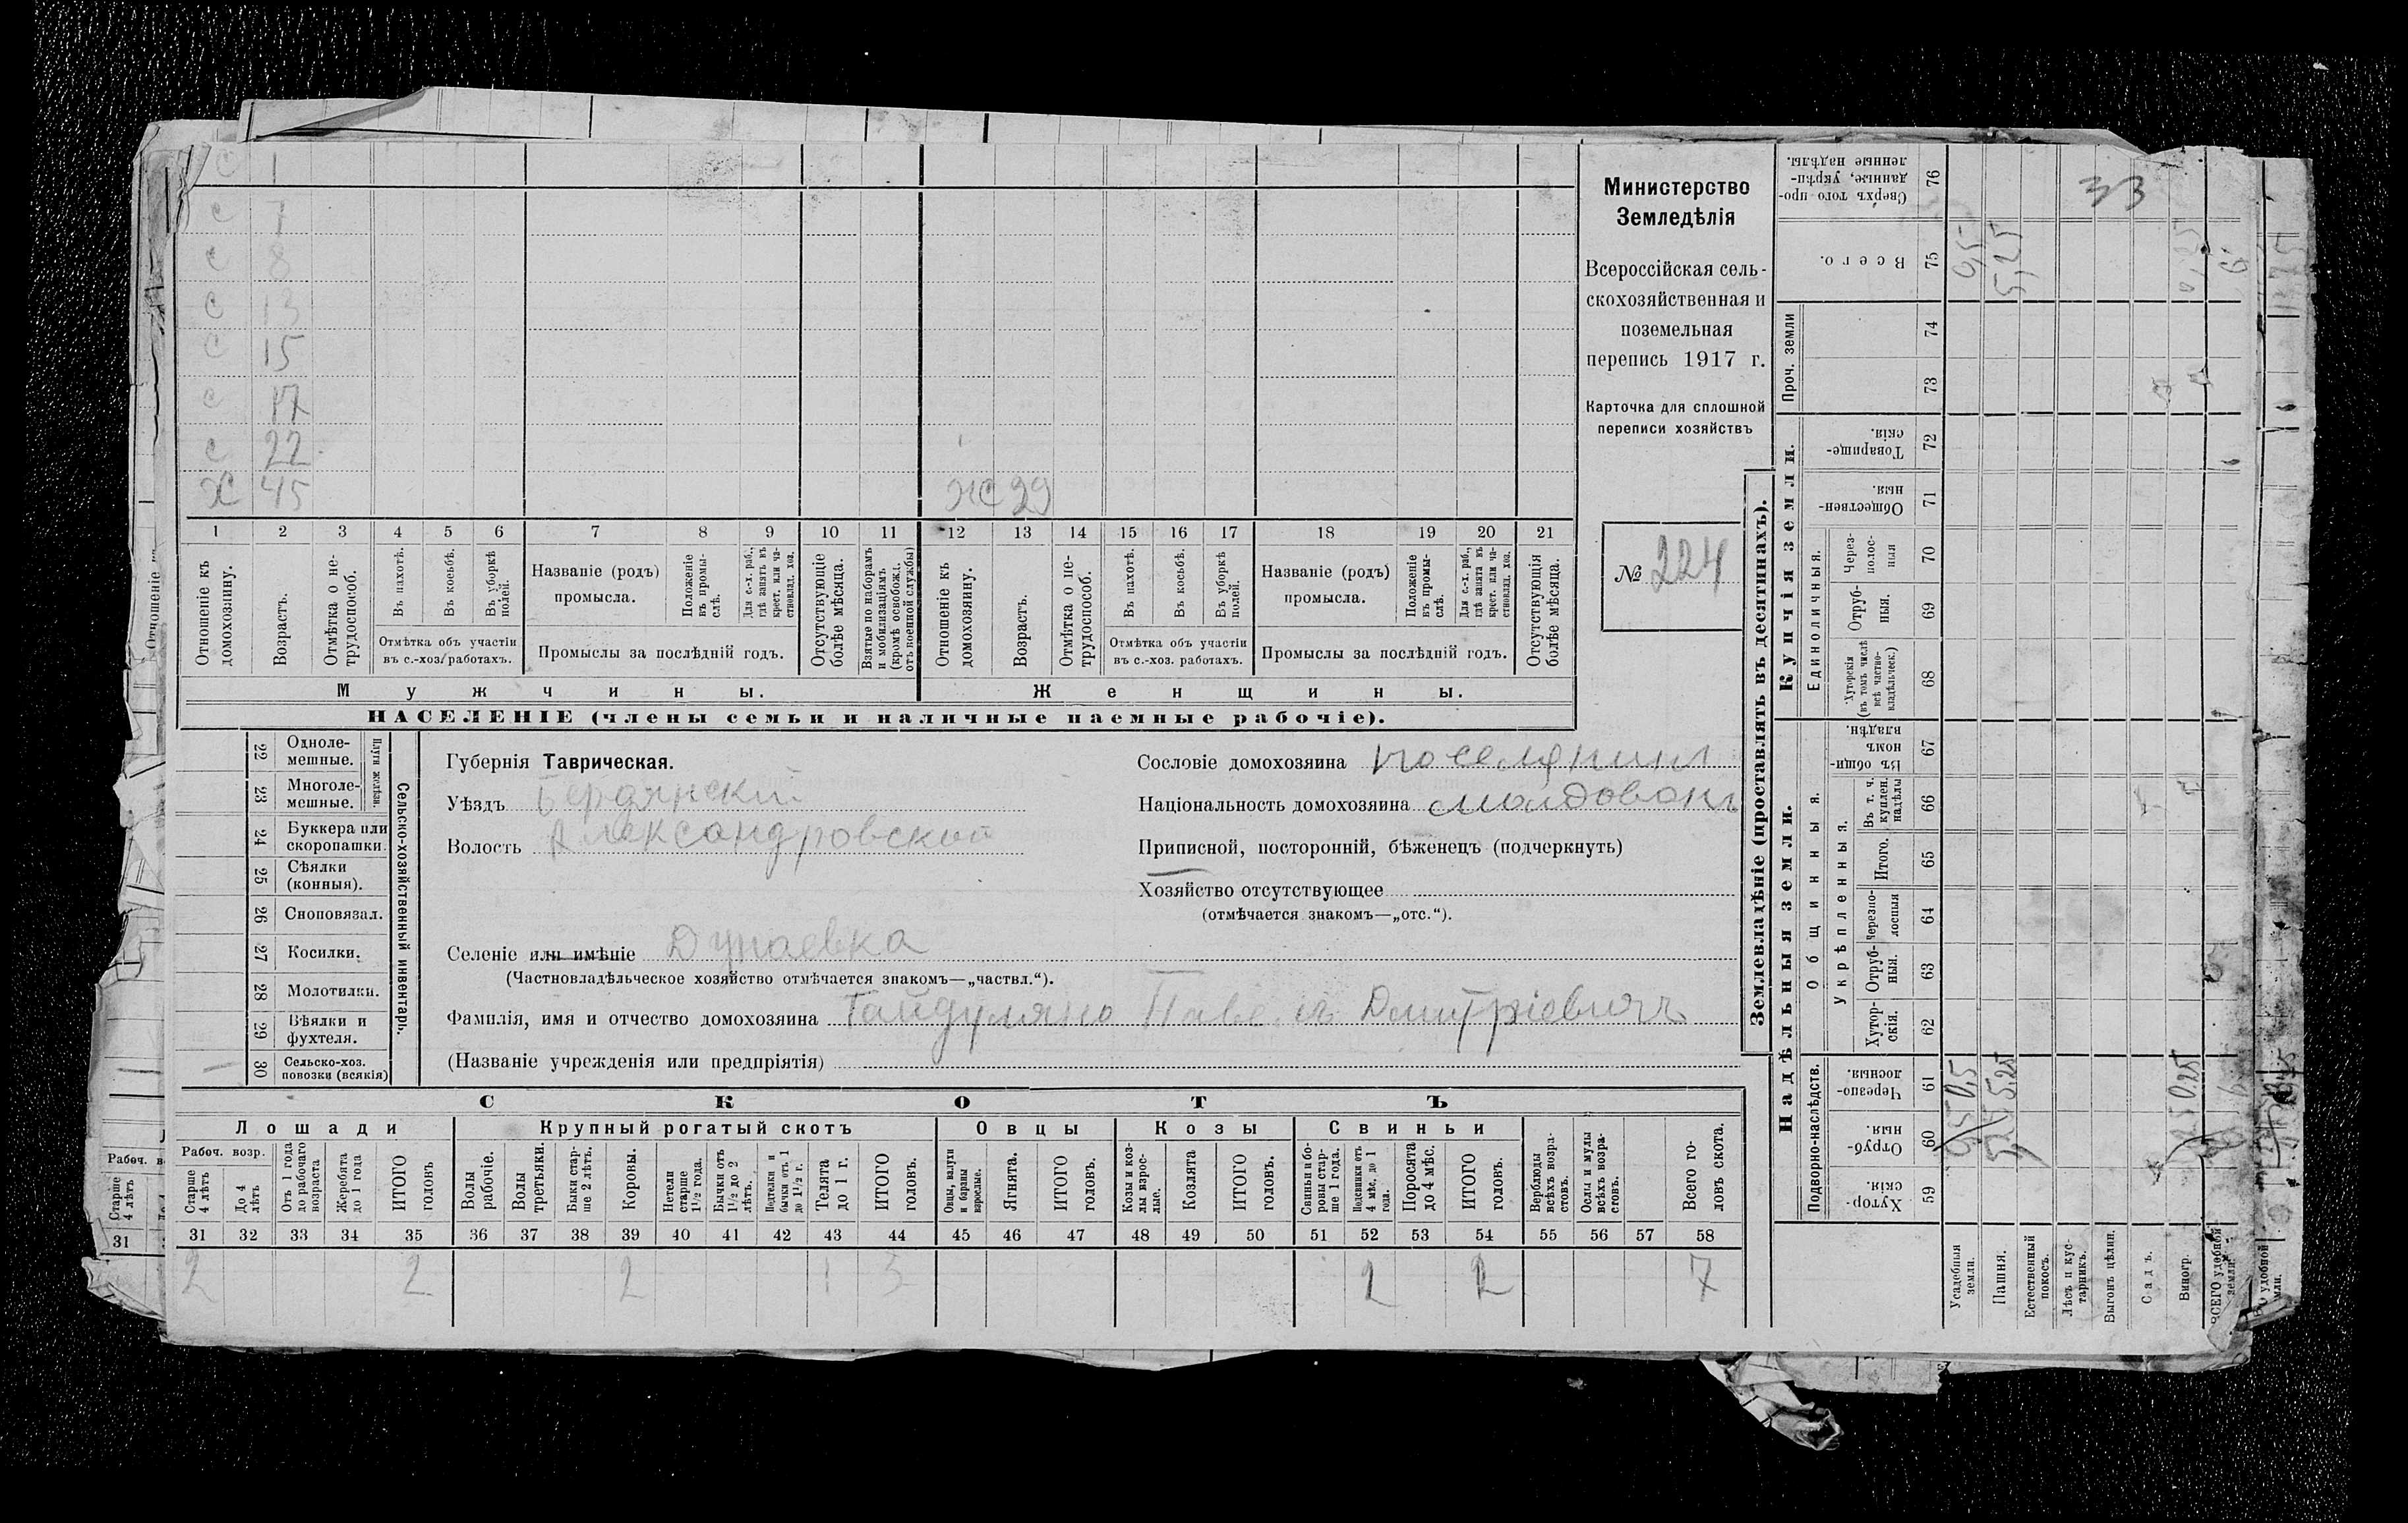 С 1
С 7
С 8
С 13
С 15
С 17
С 22
Х 45
ж 39
1 2 3 4 5 6 7 8 9 10 11 12 13 14 15 16 17 18 19 20 21
Отношеніе къ домохозяину.
Возрастъ.
Отмѣтка о не-трудоспособ.
Въ пахотѣ.
Въ косьбѣ.
Въ уборкѣ полей.
Отмѣтка объ участіи
въ с.-хоз. работахъ.
Названіе (родъ)
промысла.
Положеніе въ промы-слѣ.
Для с.-х. раб., гдѣ занятъ въ крест. или ча-стновлад. хоз.
Промыслы за послѣдній годъ.
Отсутствующіе болѣе мѣсяца.
Взятые по наборамъ и мобилизаціямъ (кромѣ освобожд. отъ военной службы)
Отношеніе къ домохозяину.
Возрастъ.
Отмѣтка о не-трудоспособ.
Въ пахотѣ.
Въ косьбѣ.
Въ уборкѣ полей.
Отмѣтка объ участіи
въ с.-хоз. работахъ.
Названіе (родъ)
промысла.
Положеніе въ промы-слѣ.
Для с.-х. раб., гдѣ занята въ крест. или ча-стновлад. хоз.
Промыслы за послѣдній годъ.
Отсутствующія болѣе мѣсяца.
Мужчины.
Женщины.
НАСЕЛЕНІЕ (члены семьи и наличные наемные рабочіе).
Министерство
Земледѣлія
Всероссійская сель-
скохозяйственная и
поземельная
перепись 1917 г.
Карточка для сплошной
переписи хозяйствъ
№ 224
Сельско-хозяйственный инвентарь.
Плуги желѣзн.
22 Одноле-мешные.
23 Многоле-мешные.
24 Буккера или скоропашки.
25 Сѣялки (конныя).
26 Сноповязал.
27 Косилки.
28 Молотилки.
29 Вѣялки и фухтеля.
30 Сельско-хоз. повозки (всякія)
Губернія Таврическая.
Уѣздъ Бердянский
Волость Александровской
Селеніе или имѣніе Дунаевка
(Частновладѣльческое хозяйство отмѣчается знакомъ—„частвл.“).
Фамилія, имя и отчество домохозяина Гайдуляно Павелъ Дмитріевичъ
(Названіе учрежденія или предпріятія)
Сословіе домохозяина поселянин
Національность домохозяина молдованъ
Приписной, посторонній, бѣженецъ (подчеркнуть)
Хозяйство отсутствующее
(отмѣчается знакомъ—„отс.“).
СКОТЪ
Лошади
Рабоч. возр.
Старше 4 лѣтъ
До 4 лѣтъ
Отъ 1 года до рабочаго возраста
Жеребята до 1 года
ИТОГО головъ
Крупный рогатый скотъ
Волы рабочіе.
Волы третьяки.
Быки стар-ше 2 лѣтъ.
Коровы.
Нетели старше 1½ года.
Бычки отъ 1½ до 2 лѣтъ.
Подтелки и бычки отъ 1 до 1½ г.
Телята до 1 г.
ИТОГО головъ.
Овцы
Овцы, валухи и бараны взрослые.
Ягнята.
ИТОГО головъ.
Козы
Козы и коз-лы взрос-лые.
Козлята
ИТОГО головъ.
Свиньи
Свиньи и бо-ровы стар-ше 1 года.
Подсвинки отъ 4 мѣс. до 1 года.
Поросята до 4 мѣс.
ИТОГО головъ.
Верблюды всѣхъ возра-стовъ.
Ослы и мулы всѣхъ возра-стовъ.
Всего го-ловъ скота.
31 32 33 34 35 36 37 38 39 40 41 42 43 44 45 46 47 48 49 50 51 52 53 54 55 56 57 58
2 2 2 1 3 2 2 7
Землевладѣніе (проставлять въ десятинахъ).
Надѣльныя земли.
Купчія земли.
Проч. земли
Подворно-наслѣдств.
Общинныя.
Укрѣпленныя.
Единоличныя.
Хутор-скія. 59
Отруб-ныя. 60
Черезпо-лосныя. 61
Хутор-скія. 62
Отруб-ныя. 63
Черезпо-лосныя 64
Итого. 65
Въ т. ч. куплен. надѣлы 66
Въ общи-номъ владѣн. 67
Хуторскія (въ томъ числѣ всѣ частно-владѣльческ.) 68
Отруб-ныя. 69
Через-полос-ныя 70
Обществен-ныя. 71
Товарище-скія. 72
73
74
Всего. 75
Сверхъ того про-данные, укрѣп-ленные надѣлы. 76
Усадебныя земли.
Пашня.
Естественный покосъ.
Лѣсъ и кус-тарникъ.
Выгонъ цѣлин.
Садъ.
Виногр.
ВСЕГО удобной земли.
0,5
5,25
0,25
5,25
33
Рабоч.
Старше 4 лѣтъ
31